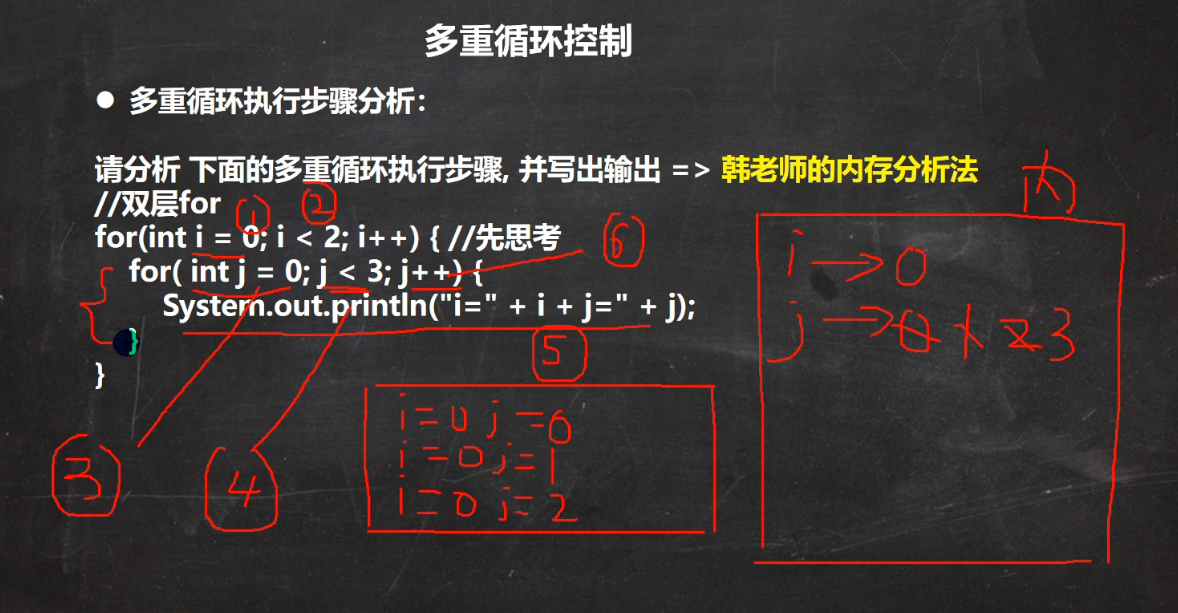 多重循环控制
● 多重循环执行步骤分析：
请分析 下面的多重循环执行步骤, 并写出输出 => 韩老师的内存分析法
内
//双层for
① ②
for(int i = 0; i < 2; i++) { //先思考
⑥
for( int j = 0; j < 3; j++) {
System.out.println("i=" + i + j=" + j);
}
}
5
i → 0
j → 0 1 2 3
i=0 j=0
i=0 j=1
i=0 j=2
3
4